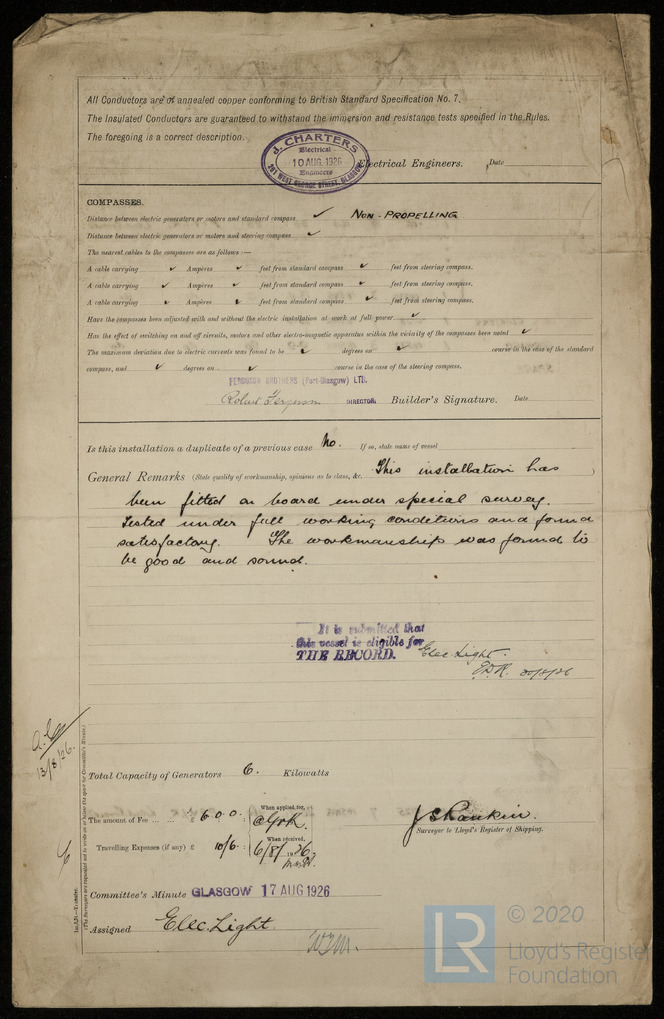 All Conductors are of annealed copper conforming to British Standard Specification No. 7.
The Insulated Conductors are guaranteed to withstand the immersion and resistance tests specified in the Rules.
The foregoing is a correct description.
J. CHARTERS
Electrical
10 AUG. 1926
Engineers
WEST GEORGE STREET, GLASGOW
Electrical Engineers. Date
COMPASSES.
Distance between electric generators or motors and standard compass ✓ NON-PROPELLING
Distance between electric generators or motors and steering compass ✓
The nearest cables to the compasses are as follows :—
A cable carrying ✓ Ampères ✓ feet from standard compass ✓ feet from steering compass.
A cable carrying ✓ Ampères ✓ feet from standard compass ✓ feet from steering compass.
A cable carrying ✓ Ampères ✓ feet from standard compass ✓ feet from steering compass.
Have the compasses been adjusted with and without the electric installation at work at full power ✓
Has the effect of switching on and off circuits, motors and other electro-magnetic apparatus within the vicinity of the compasses been noted ✓
The maximum deviation due to electric currents was found to be ✓ degrees on ✓ course in the case of the standard
compass, and ✓ degrees on ✓ course in the case of the steering compass.
FERGUSON BROTHERS (Port-Glasgow) LTD.
Robert Ferguson DIRECTOR. Builder's Signature. Date
Is this installation a duplicate of a previous case No. If so, state name of vessel
General Remarks (State quality of workmanship, opinions as to class, &c. This installation has )
been fitted on board under special survey.
Tested under full working conditions and found
satisfactory. The workmanship was found to
be good and sound.
It is submitted that
this vessel is eligible for
THE RECORD. Elec. Light.
13/8/26.
Total Capacity of Generators 6. Kilowatts
The amount of Fee ... ... £ 6 : 0 : 0 : When applied for,
Travelling Expenses (if any) £ 10/6 : When received, 6/8/1926
J S Rankin.
Surveyor to Lloyd's Register of Shipping.
Committee's Minute GLASGOW 17 AUG 1926
Assigned Elec. Light.
LR
© 2020
Lloyd's Register
Foundation